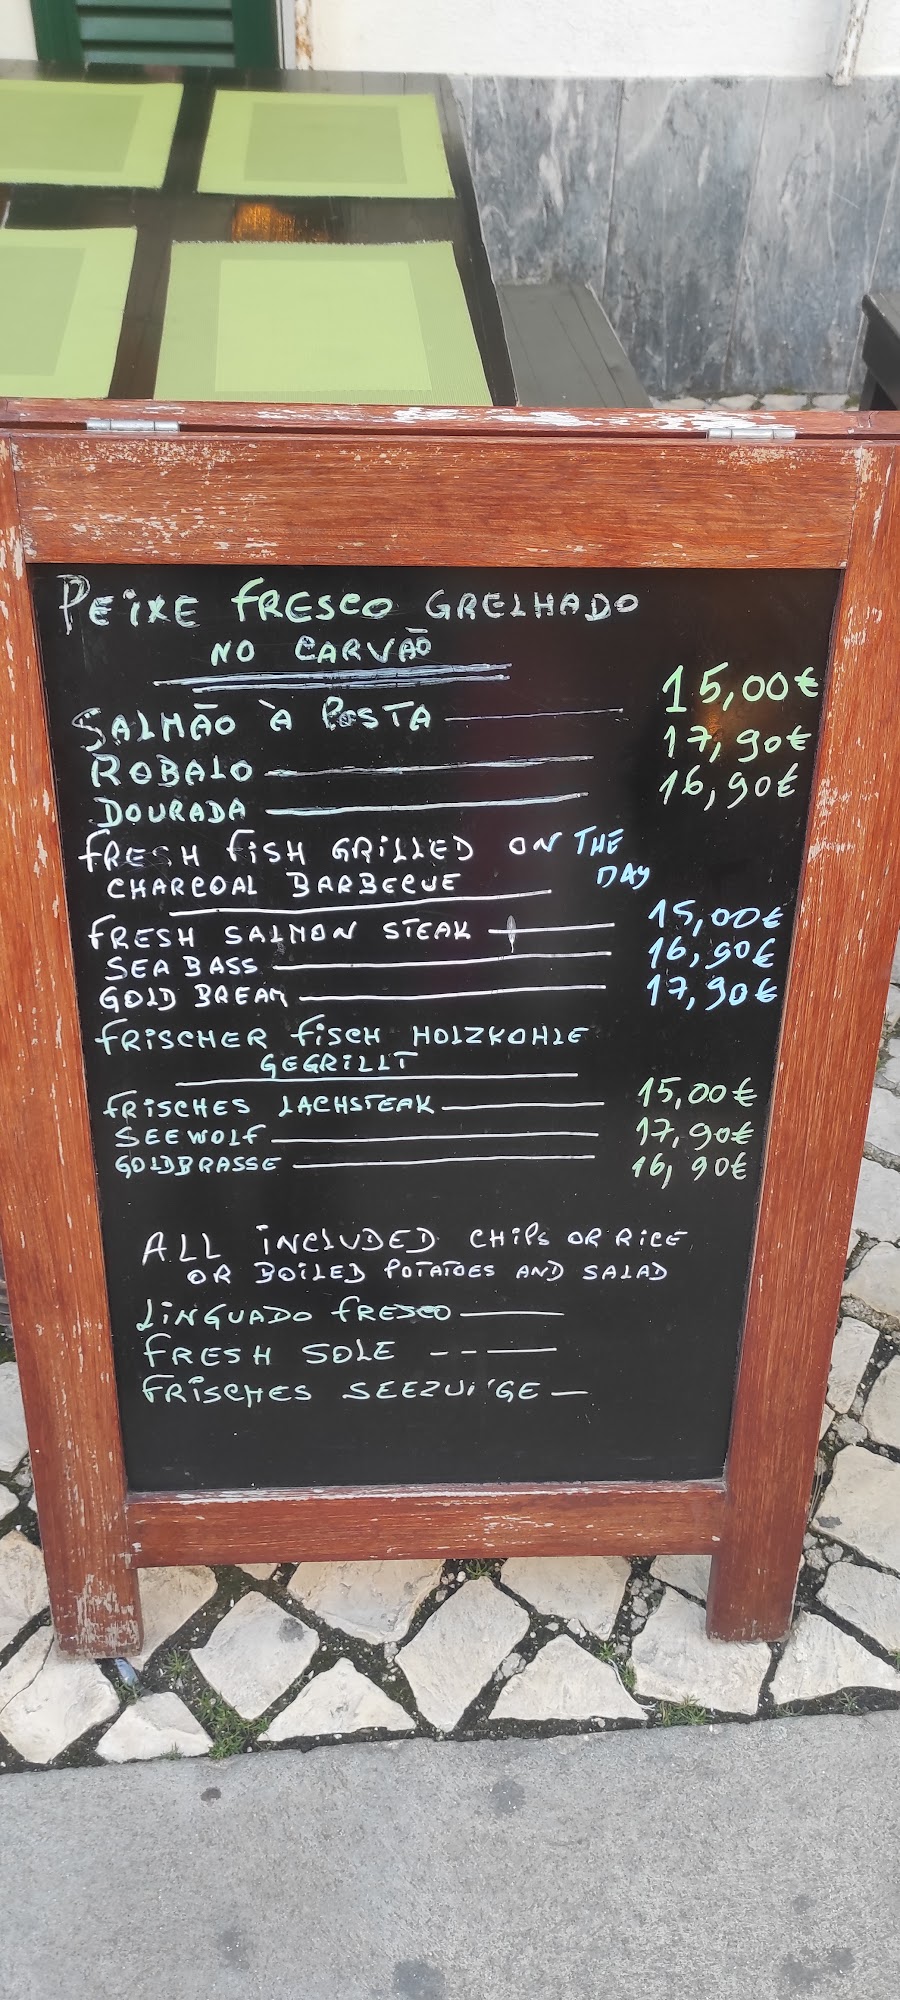 PEIXE FRESCO GRELHADO
NO CARVÃO
SALMÃO À POSTA 15,00€
ROBALO 17,90€
DOURADA 16,90€
FRESH FISH GRILLED ON THE
CHARCOAL BARBECUE DAY
FRESH SALMON STEAK 15,00€
SEA BASS 16,90€
GOLD BREAM 17,90€
FRISCHER FISCH HOLZKOHLE
GEGRILLT
FRISCHES LACHSTEAK 15,00€
SEEWOLF 17,90€
GOLDBRASSE 16,90€
ALL INCLUDED CHIPS OR RICE
OR BOILED POTATOES AND SALAD
LINGUADO FRESCO
FRESH SOLE
FRISCHES